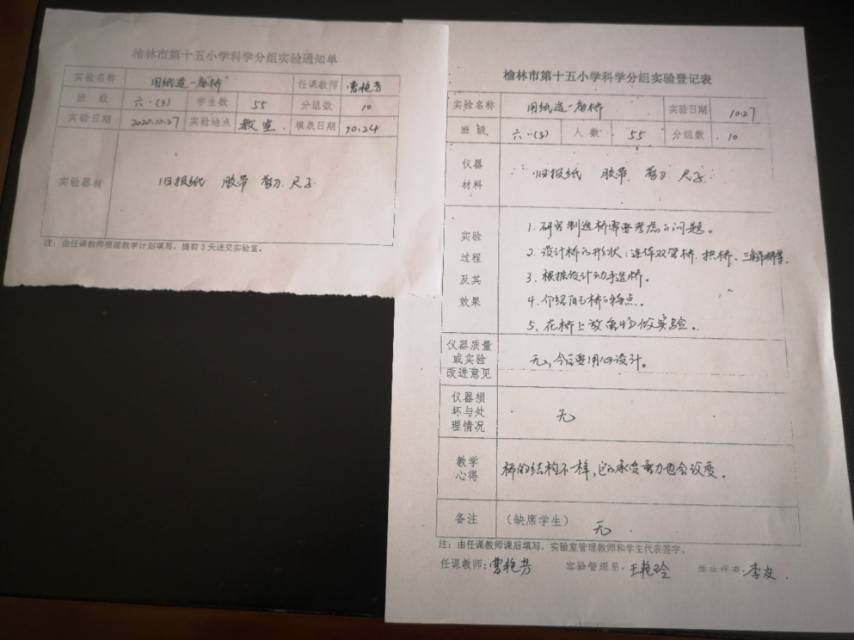 榆林市第十五小学科学分组实验通知单
实验名称 用纸造一座桥 任课教师 曹艳芳
班级 六.(3) 学生数 55 分组数 10
实验日期 2020.10.27 实验地点 教室. 填表日期 10.24
实验器材 旧报纸 胶带 剪刀 尺子
注：由任课教师根据教学计划填写，提前3天送交实验室。
榆林市第十五小学科学分组实验登记表
实验名称 用纸造一座桥 实验日期 10.27
班级 六.(3) 人数 55 分组数 10
仪器材料 旧报纸 胶带 剪刀 尺子
实验过程及其效果
1. 研究制造桥需要考虑的问题。
2. 设计桥的形状：连体双管桥、拱桥、
3. 根据设计动手造桥。
4. 介绍自己桥的特点。
5. 在桥上放重物做实验。
仪器质量或实验改进意见 无，今后要用心设计。
仪器损坏与处理情况 无
教学心得 桥的结构不一样，它的承受重力也会改变。
备注 （缺席学生） 无
注：由任课教师课后填写，实验室管理教师和学生代表签字。
任课教师：曹艳芳 实验管理员：王艳玲 李友